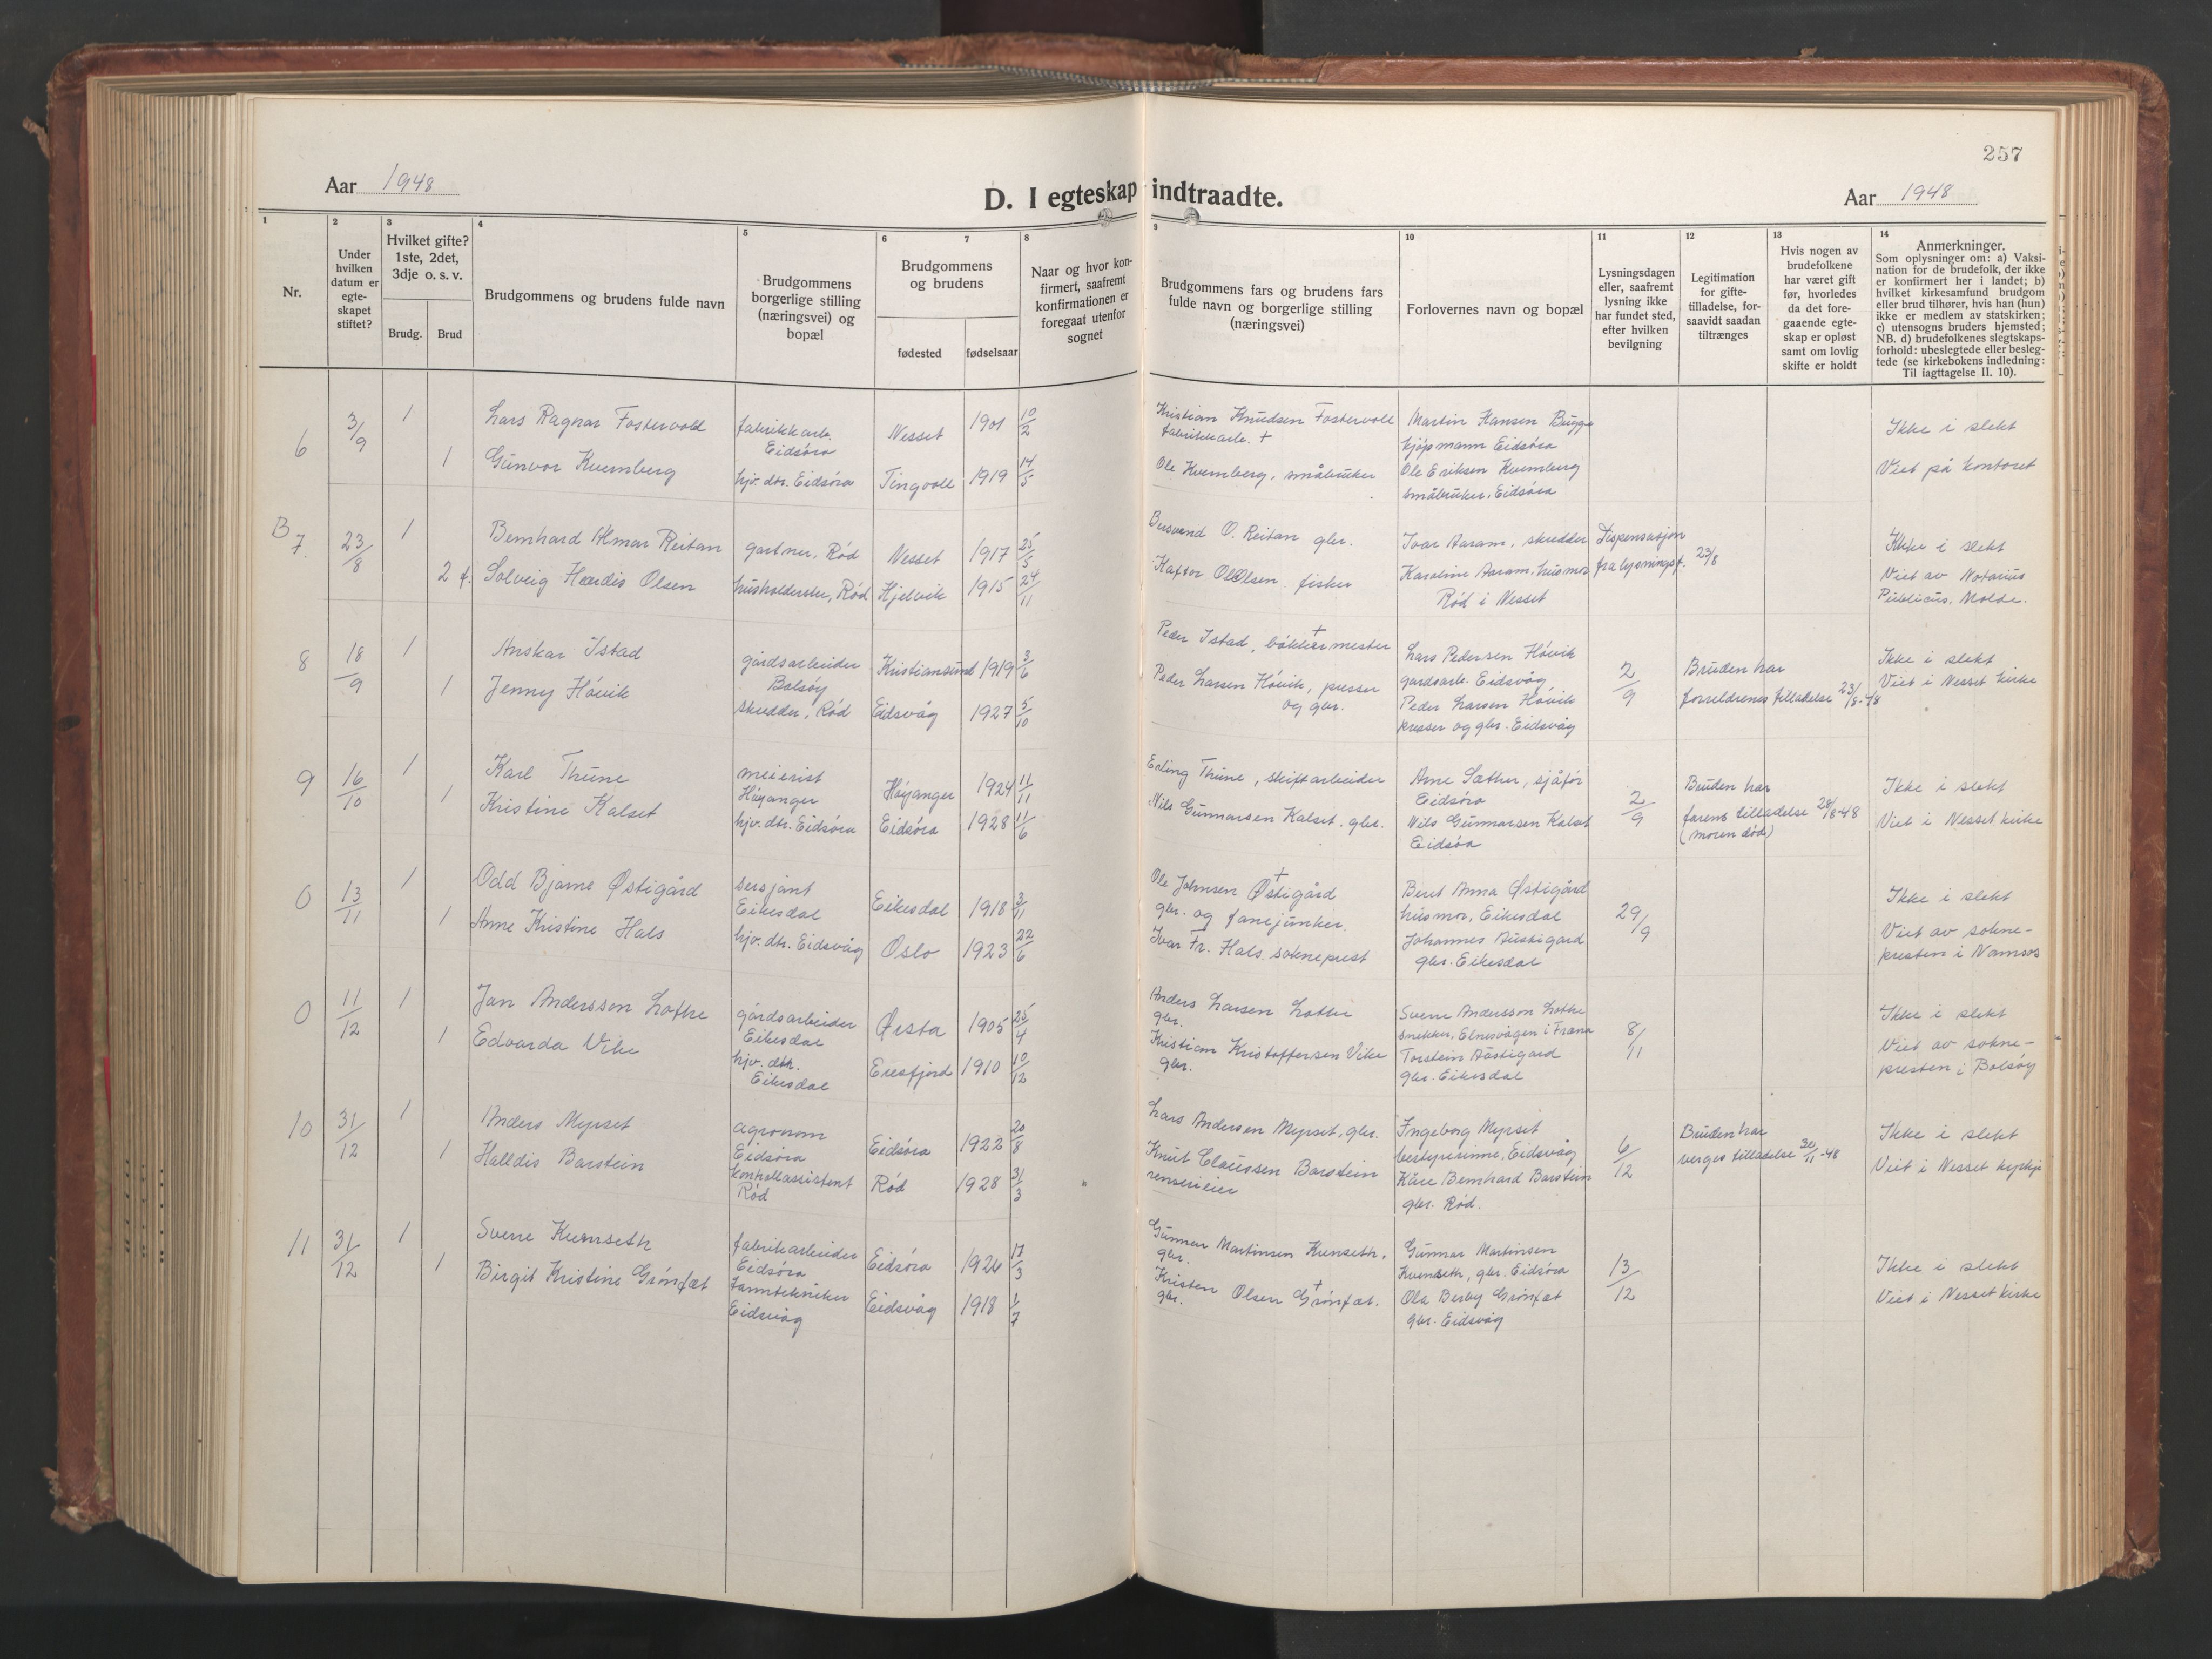 257
Aar 1948
D. I egteskap indtraadte.
Aar 1948
1 2 3 4 5 6 7 8 9 10 11 12 13 14
Nr.
Under hvilken datum er egte-skapet stiftet?
Hvilket gifte? 1ste, 2det, 3dje o. s. v.
Brudg. Brud
Brudgommens og brudens fulde navn
Brudgommens borgerlige stilling (næringsvei) og bopæl
Brudgommens og brudens
fødested fødselsaar
Naar og hvor kon-firmert, saafremt konfirmationen er foregaat utenfor sognet
Brudgommens fars og brudens fars fulde navn og borgerlige stilling (næringsvei)
Forlovernes navn og bopæl
Lysningsdagen eller, saafremt lysning ikke har fundet sted, efter hvilken bevilgning
Legitimation for gifte-tilladelse, for-saavidt saadan tiltrænges
Hvis nogen av brudefolkene har været gift før, hvorledes da det fore-gaaende egte-skap er opløst samt om lovlig skifte er holdt
Anmerkninger.
Som oplysninger om: a) Vaksi-nation for de brudefolk, der ikke er konfirmert her i landet; b) hvilket kirkesamfund brudgom eller brud tilhører, hvis han (hun) ikke er medlem av statskirken; c) utensogns bruders hjemsted; NB. d) brudefolkenes slegtskaps-forhold: ubeslegtede eller beslegtede (se kirkebokens indledning: Til iagttagelse II. 10).
6 3/9 1 Lars Ragnar Fostervold fabrikkarb. Eidsøra Nesset 1901 10/2 Kristian Knudsen Fostervoll fabrikkarb. + Martin Hansen Bugge kjøpmann Eidsøra Ikke i slekt
1 Gunvor Kvernberg hjv. dtr. Eidsøra Tingvoll 1919 14/5 Ole Kvernberg, småbruker Ole Eriksen Kvernberg småbruker, Eidsøra Viet på kontoret
B 7. 23/8 1 Bernhard Almar Reitan gartner, Rød Nesset 1917 25/5 Bersvend O. Reitan gbr. Ivar Aaram, skredder Dispensasjon Ikke i slekt
2 f. Solveig Herdis Olsen husholderske, Rød Hjelvik 1915 24/11 Haftor Ol Olsen fisker Karoline Aaram, husmor Rød i Nesset fra lysningspl. 23/8 Viet av Notarius Publicus, Molde.
8 18/9 1 Anskar Istad gårdsarbeider Bolsøy Kristiansund 1919 3/6 Peder Istad, bøkkermester + Lars Pedersen Høvik gardsarb. Eidsvåg 2/9 Bruden har Ikke i slekt
1 Jenny Høvik skredder, Rød Eidsvåg 1927 5/10 Peder Larsen Høvik, presser og gbr. Peder Larsen Høvik presser og gbr. Eidsvåg foreldrenes tilladelse 23/8-48 Viet i Nesset kirke
9 16/10 1 Karl Thune meierist Høyanger Høyanger 1924 11/11 Erling Thune, skiftarbeider Arne Sæther, sjåfør Eidsøra 2/9 Bruden har Ikke i slekt
1 Kristine Kalset hjv. dtr. Eidsøra Eidsøra 1928 11/6 Nils Gunnarsen Kalset. gbr. Nils Gunnarsen Kalset Eidsøra farens tilladelse 28/8-48 (moren død) Viet i Nesset kirke
0 13/11 1 Odd Bjarne Østigård sersjant Eikesdal Eikesdal 1918 3/11 Ole Johnsen Østigård + gbr. og fanejunker. Beret Anna Østigård husmor, Eikesdal 29/9 Ikke i slekt
1 Anne Kristine Hals hjv. dtr. Eidsvåg Oslo 1923 22/6 Ivar Fr. Hals. sokneprest Johannes Austigard gbr. Eikesdal Viet av sokne-presten i Namsos
0 11/12 1 Jan Andersson Lothe gårdsarbeider Eikesdal Ørsta 1905 25/4 Anders Larsen Lothe gbr. Sverre Andersson Lothe snekker, Elnesvågen i Fræna 8/11 Ikke i slekt
1 Edvarda Vike hjv. dtr. Eikesdal Eresfjord 1910 10/12 Kristian Kristoffersen Vike gbr. Torstein Austigard gbr. Eikesdal Viet av sokne-presten i Bolsøy
10 31/12 1 Anders Myrset agronom Eidsøra Eidsøra 1922 20/8 Lars Andersen Myrset, gbr. Ingeborg Myrset bestyrerinne, Eidsvåg 6/12 Bruden har Ikke i slekt
1 Halldis Barstein kontrollassistent Rød Rød 1928 31/3 Knut Claussen Barstein renserieier Kåre Bernhard Barstein gbr. Rød. verges tilladelse 30/11-48 Viet i Nesset kyrkje
11 31/12 1 Sverre Kvernseth fabrikarbeider Eidsøra Eidsøra 1926 17/3 Gunnar Martinsen Kvnseth. gbr. Gunnar Martinsen Kvernseth, gbr. Eidsøra 13/12 Ikke i slekt
1 Birgit Kristine Grønset tanntekniker Eidsvåg Eidsvåg 1918 1/7 Kristen Olsen Grønset. + gbr. Ola Berby Grønset gbr. Eidsvåg Viet i Nesset kirke